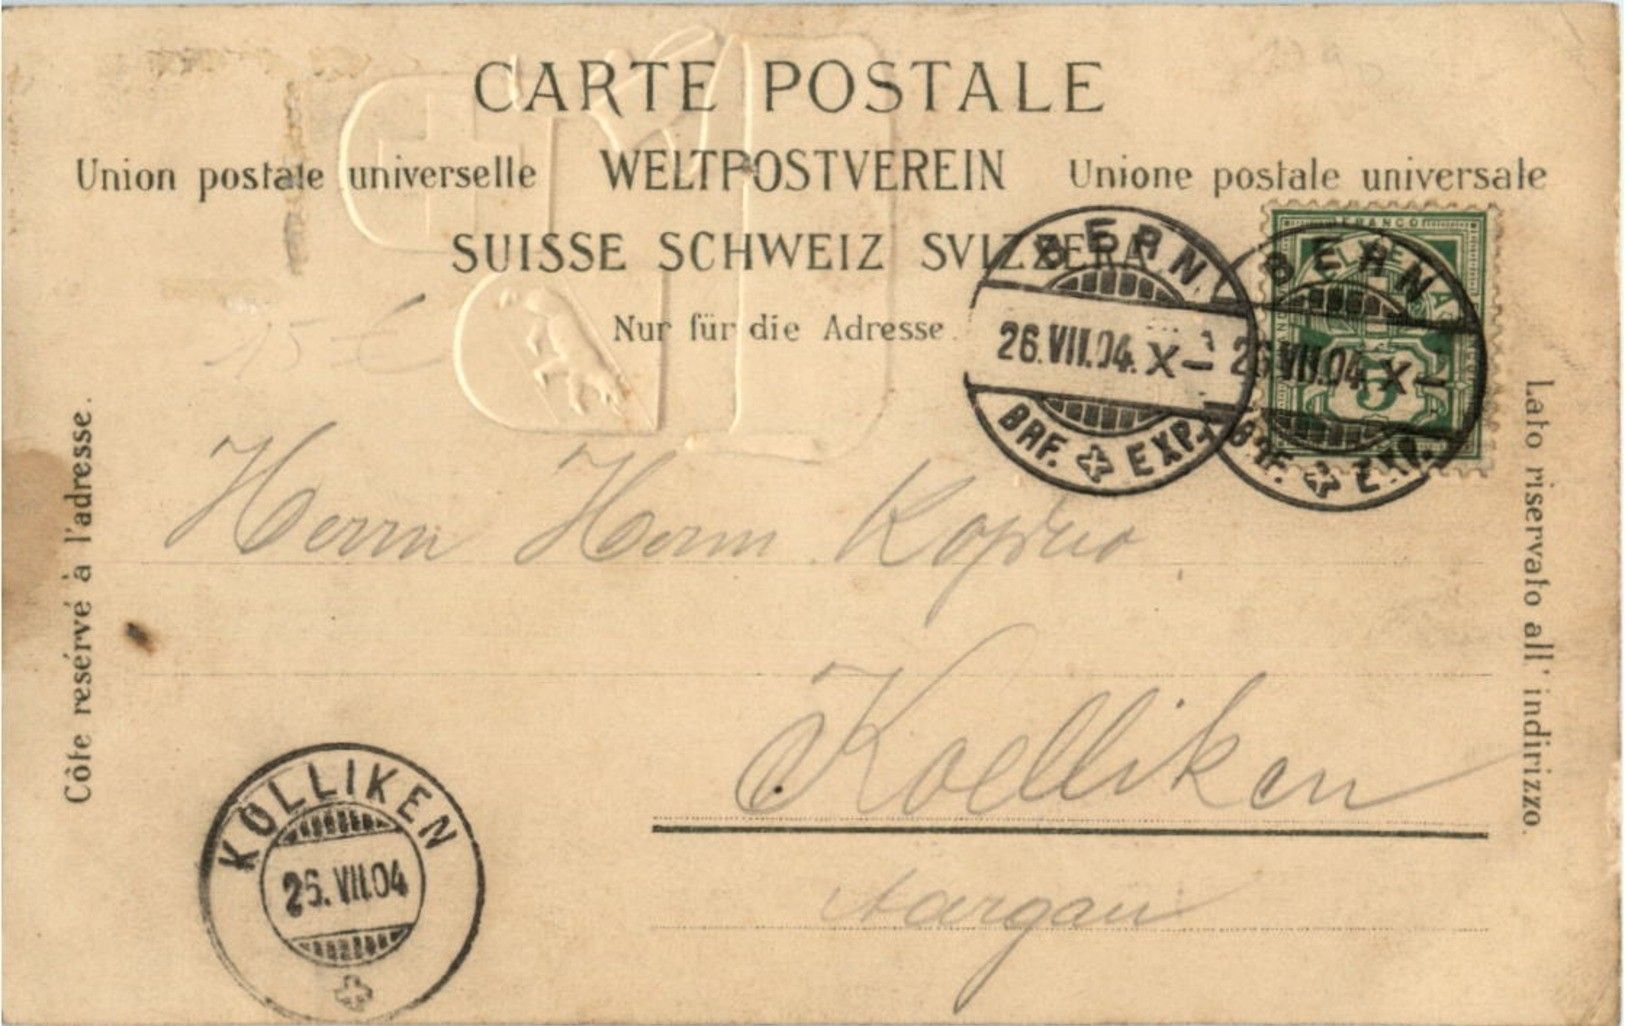 CARTE POSTALE
Union postale universelle WELTPOSTVEREIN Unione postale universale
SUISSE SCHWEIZ SVIZZERA
Nur für die Adresse.
15 €
FRANCO
HELVETIA
5
BERN
26.VII.04. X–
BRF. EXP.
BERN
26.VII.04. X–
BRF. EXP.
Côte resérvé à l'adresse.
Lato riservato all' indirizzo.
Herrn Herm
Koelliken
Aargau
KÖLLIKEN
26.VII.04